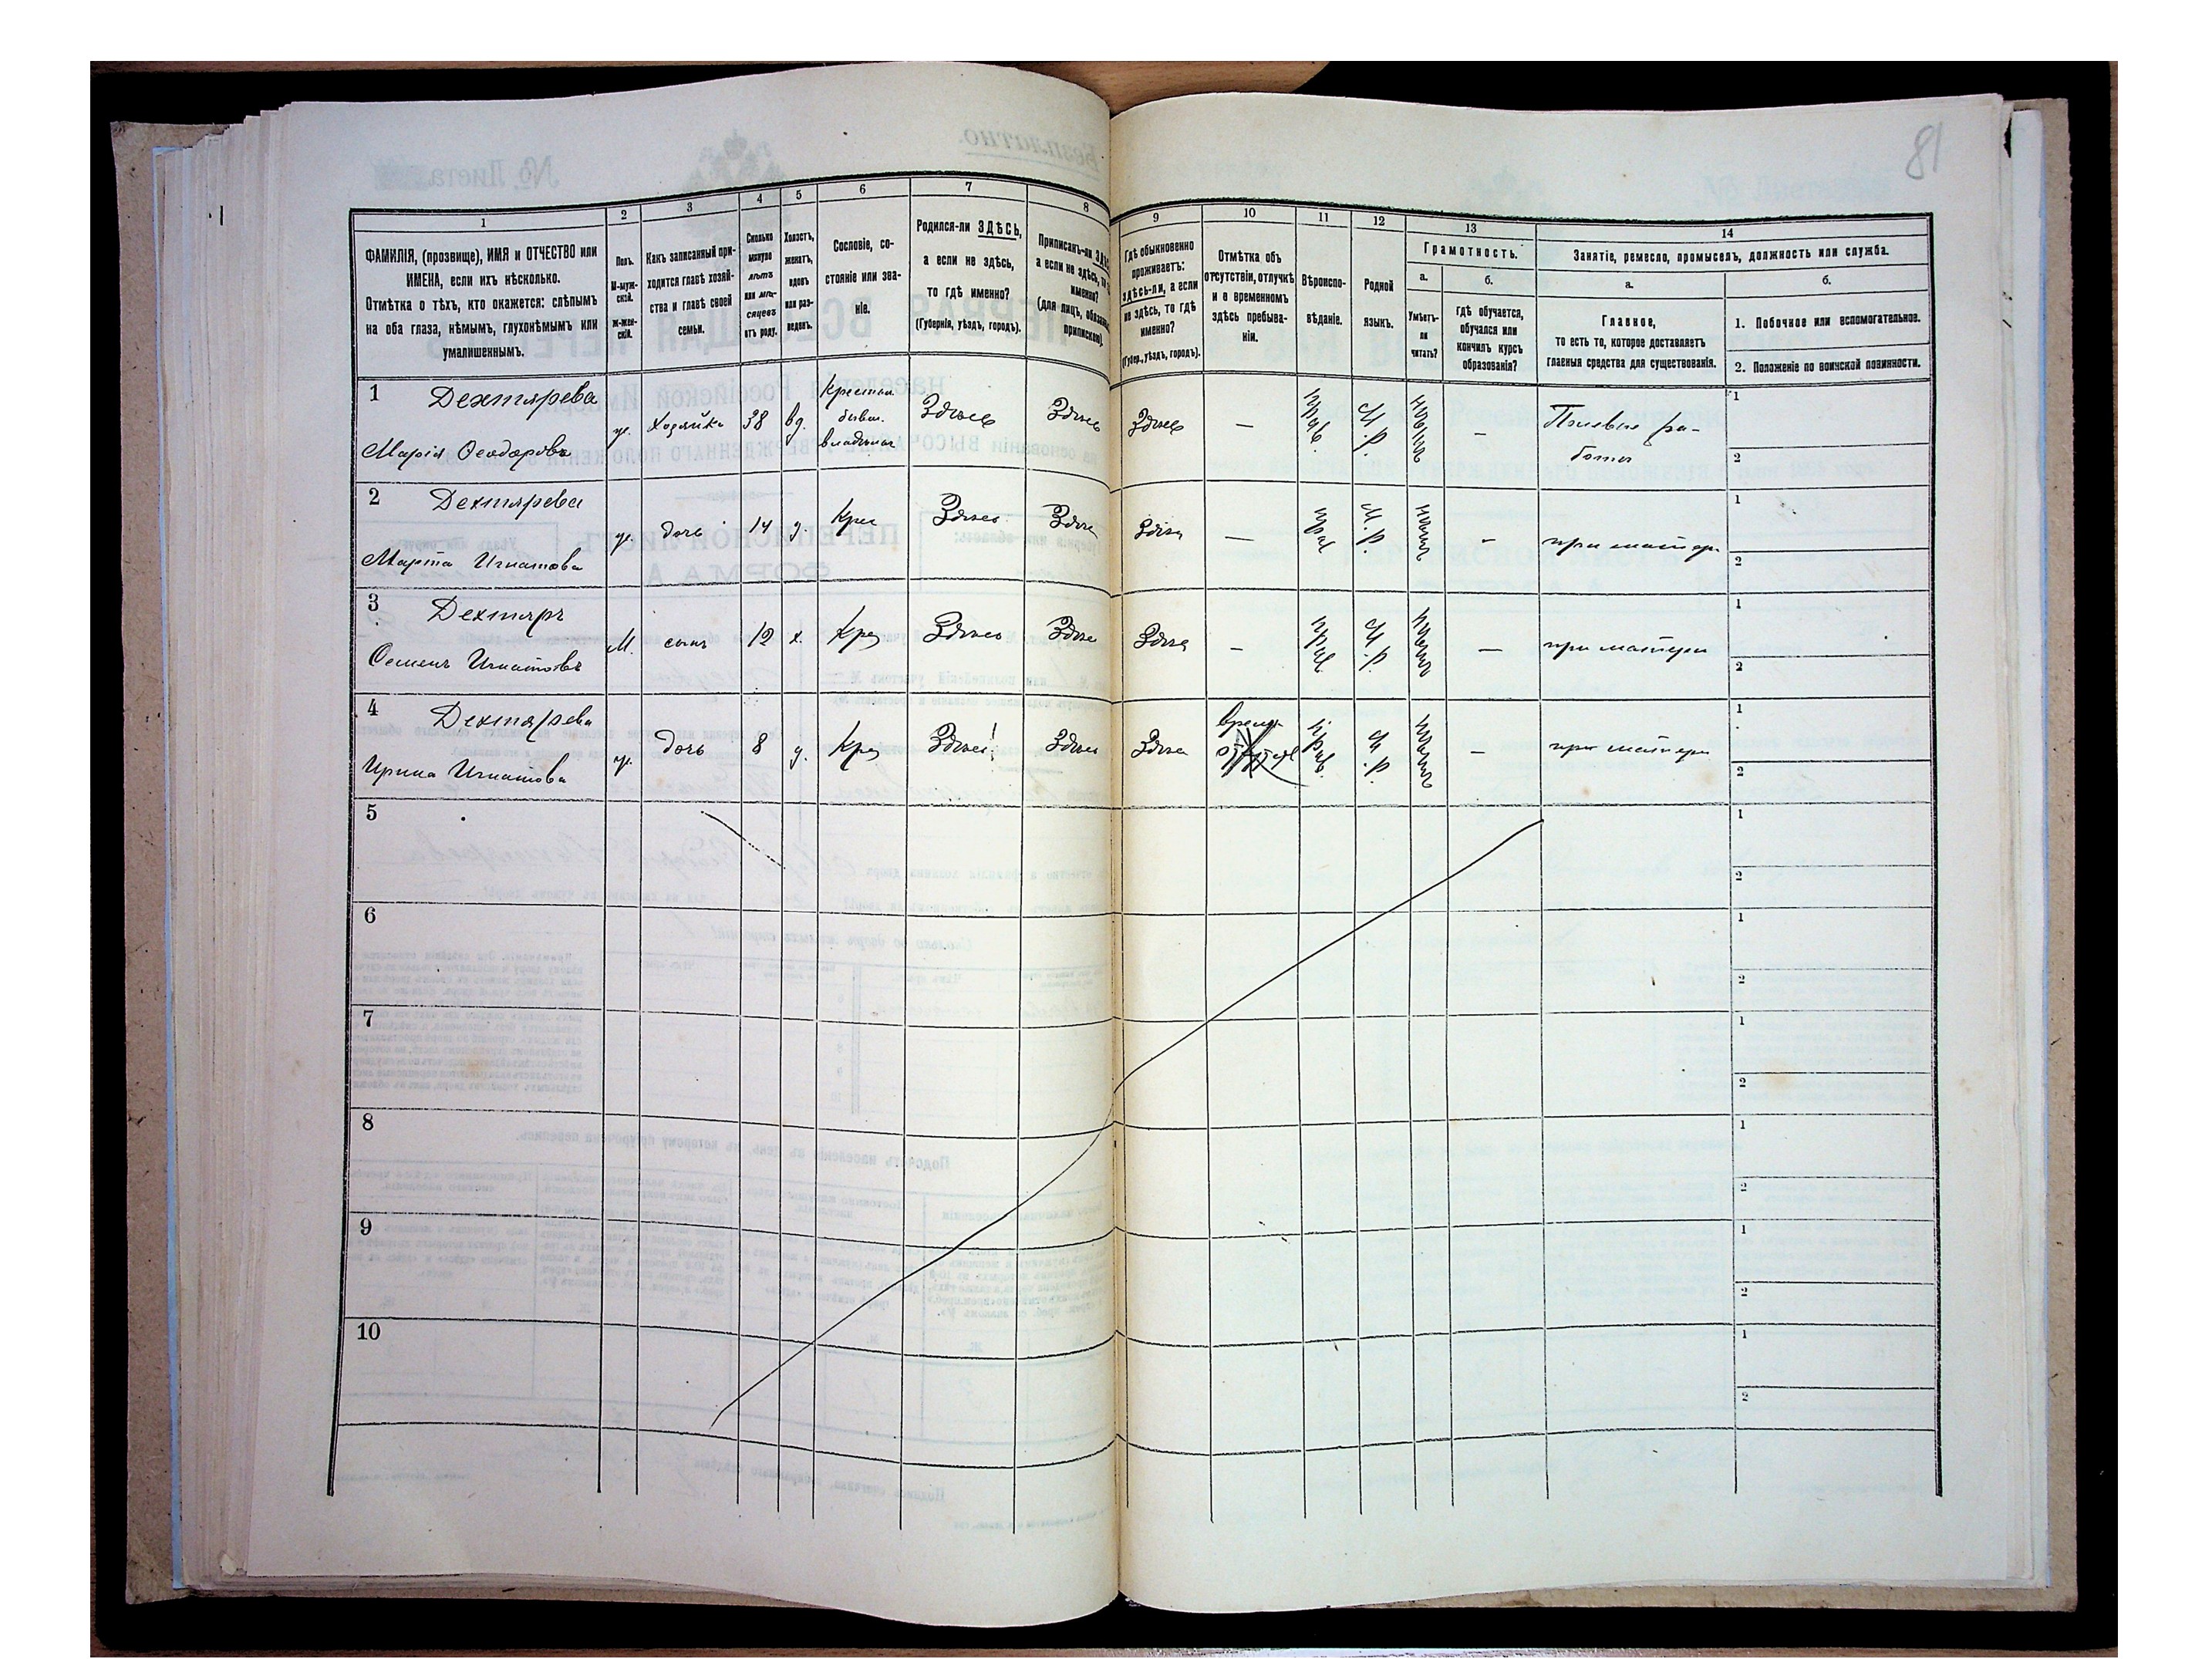 81
1
2
3
4
5
6
7
8
ФАМИЛІЯ, (прозвище), ИМЯ и ОТЧЕСТВО или
ИМЕНА, если ихъ нѣсколько.
Отмѣтка о тѣхъ, кто окажется: слѣпымъ
на оба глаза, нѣмымъ, глухонѣмымъ или
умалишеннымъ.
Полъ.
М-муж-
ской.
ж-жен-
скій.
Какъ записанный при-
ходится главѣ хозяй-
ства и главѣ своей
семьи.
Сколько
минуло
лѣтъ
или мѣ-
сяцевъ
отъ роду.
Холостъ,
женатъ,
вдовъ
или раз-
веденъ.
Сословіе, со-
стояніе или зва-
ніе.
Родился-ли ЗДѢСЬ,
а если не здѣсь,
то гдѣ именно?
(Губернія, уѣздъ, городъ).
Приписанъ-ли
а если не здѣсь,
именно?
(для лицъ,
припискою).
9
10
11
12
13
14
Гдѣ обыкновенно
проживаетъ:
здѣсь-ли, а если
не здѣсь, то гдѣ
именно?
(Губер., уѣздъ, городъ).
Отмѣтка объ
отсутствіи, отлучкѣ
и о временномъ
здѣсь пребыва-
ніи.
Вѣроиспо-
вѣданіе.
Родной
языкъ.
Грамотность.
а.
Умѣетъ-
ли
читать?
б.
гдѣ обучается,
обучался или
кончилъ курсъ
образованія?
Занятіе, ремесло, промыселъ, должность или служба.
а.
Главное,
то есть то, которое доставляетъ
главныя средства для существованія.
б.
1. Побочное или вспомогательное.
2. Положеніе по воинской повинности.
1 Дехтярева
Марія Ѳеодорова
ж. Хозяйка 38 вд.
Крестьян.
бывш.
владѣльч
Здѣсь Здѣсь Здѣсь — прав. М.Р. —
Полевые ра-
боты
1
2
2 Дехтярева
Марта Игнатова
ж. дочь 14 д. Крес Здѣсь Здѣсь Здѣсь — прав М.Р. — при матери
1
2
3 Дехтярь
Семенъ Игнатовъ
М. сынъ 12 х. Крес Здѣсь Здѣсь Здѣсь — прав М.Р. — при матери
1
2
4 Дехтярева
Ирина Игнатова
ж. дочь 8 д. Крес Здѣсь Здѣсь Здѣсь прав. М.Р. — при матери
1
2
5
1
2
6
1
2
7
1
2
8
1
2
9
1
2
10
1
2